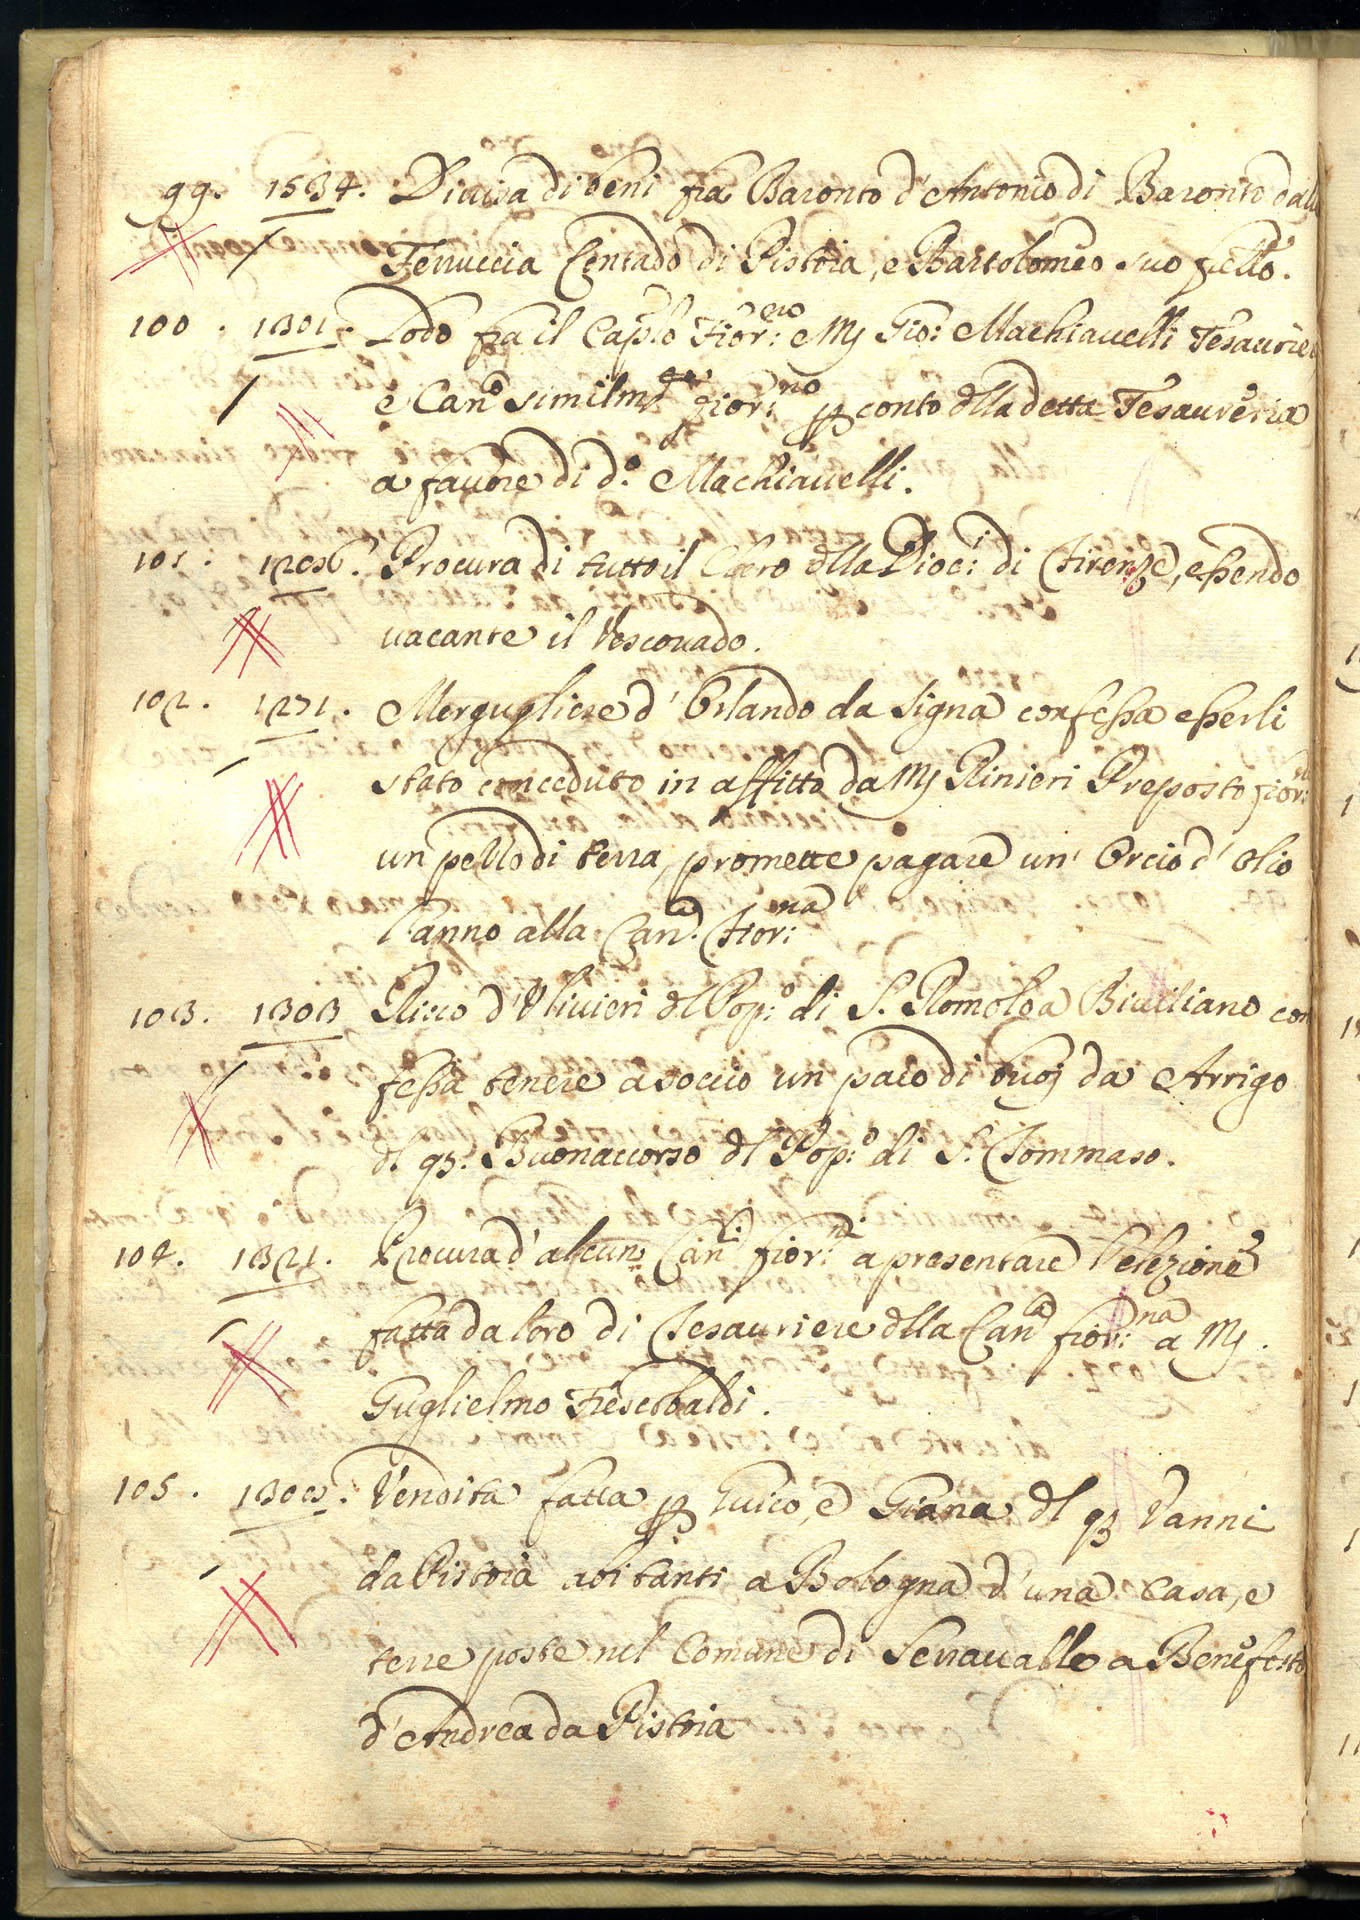 99. 1534. Diuisa di beni fra Baronto d'Antonio di Baronto dalla
Ferruccia Contado di Pistoia, e Bartolomeo suo fullo.
100. 1301. Lodo fra il Caplo Fior:no e Mſ Gio: Machiauelli Tesaurie
e Cano similmte fior:no ꝑ conto dlla detta Tesaureria
a fauore di do Machiauelli.
101. 1286. Procura di tutto il Clero dlla Dioci di Firenze, eßendo
uacante il Vescouado.
102. 1271. Mergugliese d'Orlando da Signa confeßa eßerli
stato conceduto in affitto da Mſ Rinieri Preposto fior:no
un pezzo di terra, promette pagare un' Orcio d'olio
l'anno alla Cand. Fior:na
103. 1303 Ricco d'Vliuieri dl Pop:o di S. Romolo a Biuiliano con
feßa tenere a soccio un paio di buoj da Arrigo
dl qz. Buonaccorso dl Pop:o di S. Tommaso.
104. 1321. Procura d'alcuni Can:i fior:ni a presentare l'elezione
fatta da loro di Tesauriere dlla Cand fior:na a Mſ.
Guglielmo Frescobaldi.
105. 1308. Vendita fatta ꝑ Guico, e Giana dl qz Vanni
da Pistoia abitanti a Bologna d'una Casa, e
terre poste nel Comune di Serraualle a Benefesto
d'Andrea da Pistoia